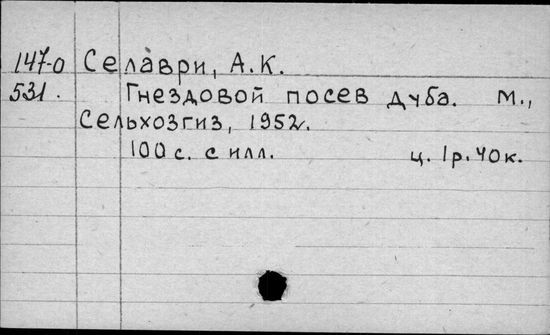 147-0 Селаври, А.К.
531. Гнездовой посев дуба. М.,
Сельхозгиз, 1952.
100 с. с илл. ц. 1р. 40к.